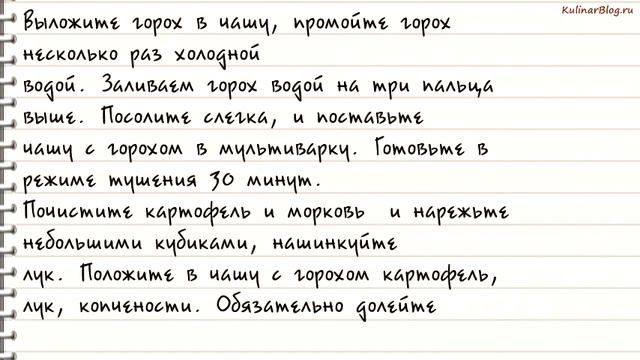 KulinarBlog.ru
Выложите горох в чашу, промойте горох
несколько раз холодной
водой. Заливаем горох водой на три пальца
выше. Посолите слегка, и поставьте
чашу с горохом в мультиварку. Готовьте в
режиме тушения 30 минут.
Почистите картофель и морковь и нарежьте
небольшими кубиками, нашинкуйте
лук. Положите в чашу с горохом картофель,
лук, копчености. Обязательно долейте